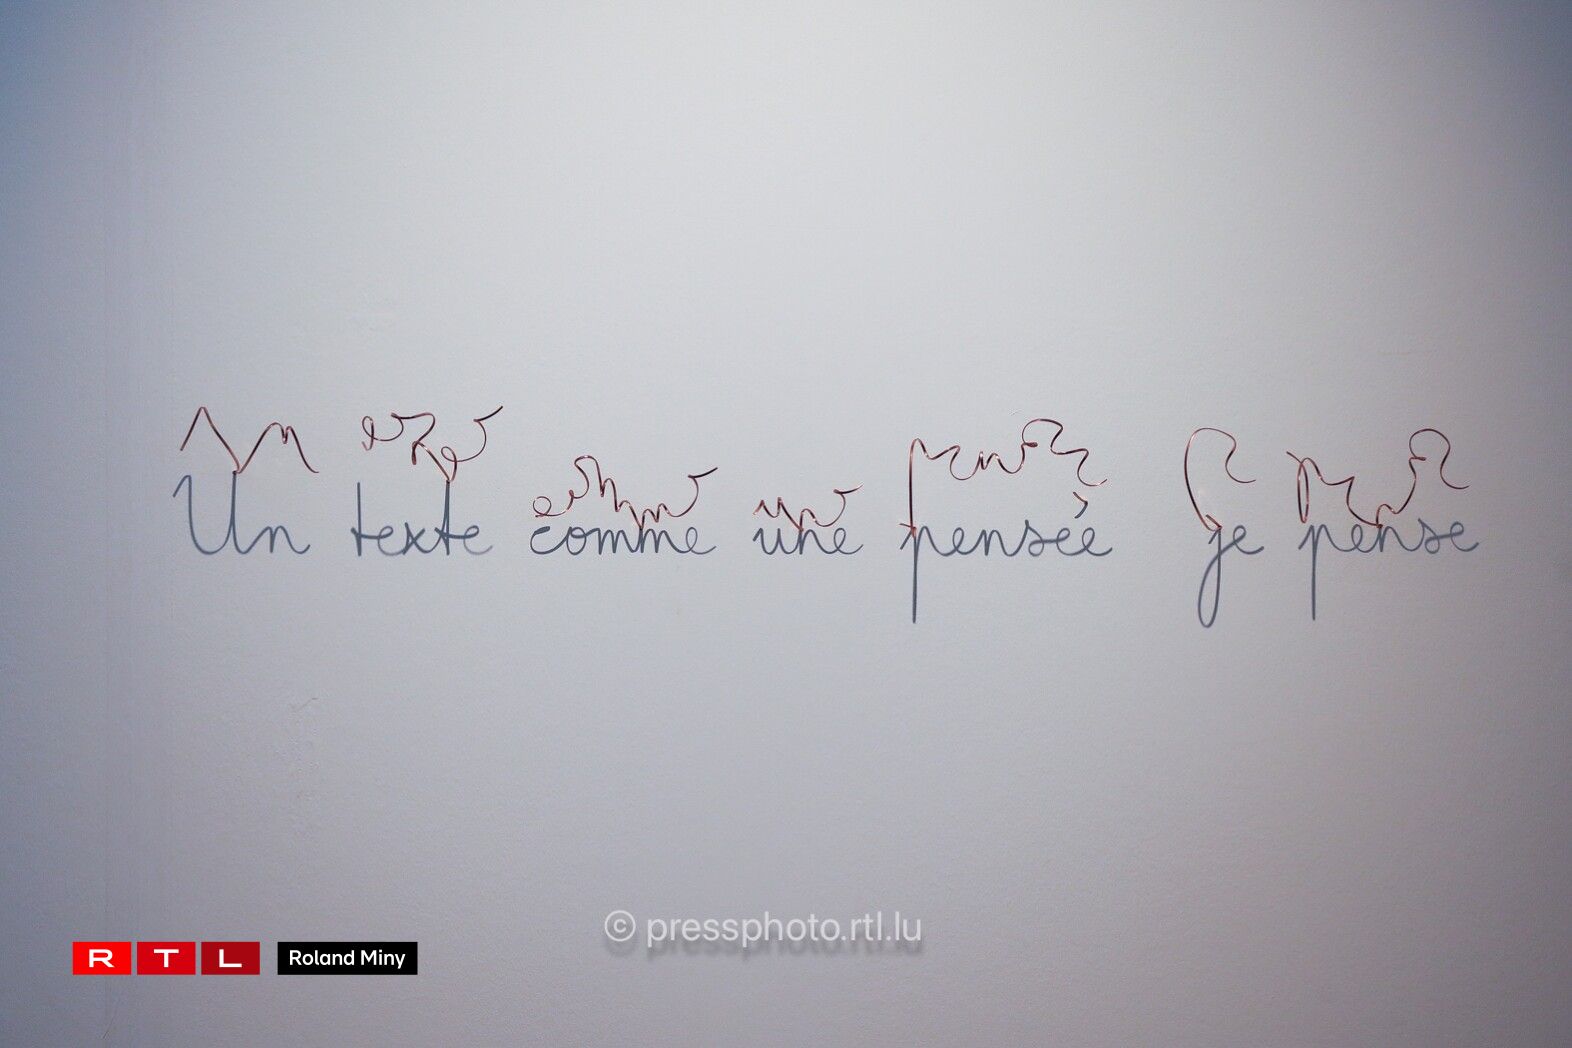 Un texte comme une pensée je pense
© pressphoto.rtl.lu
RTL Roland Miny